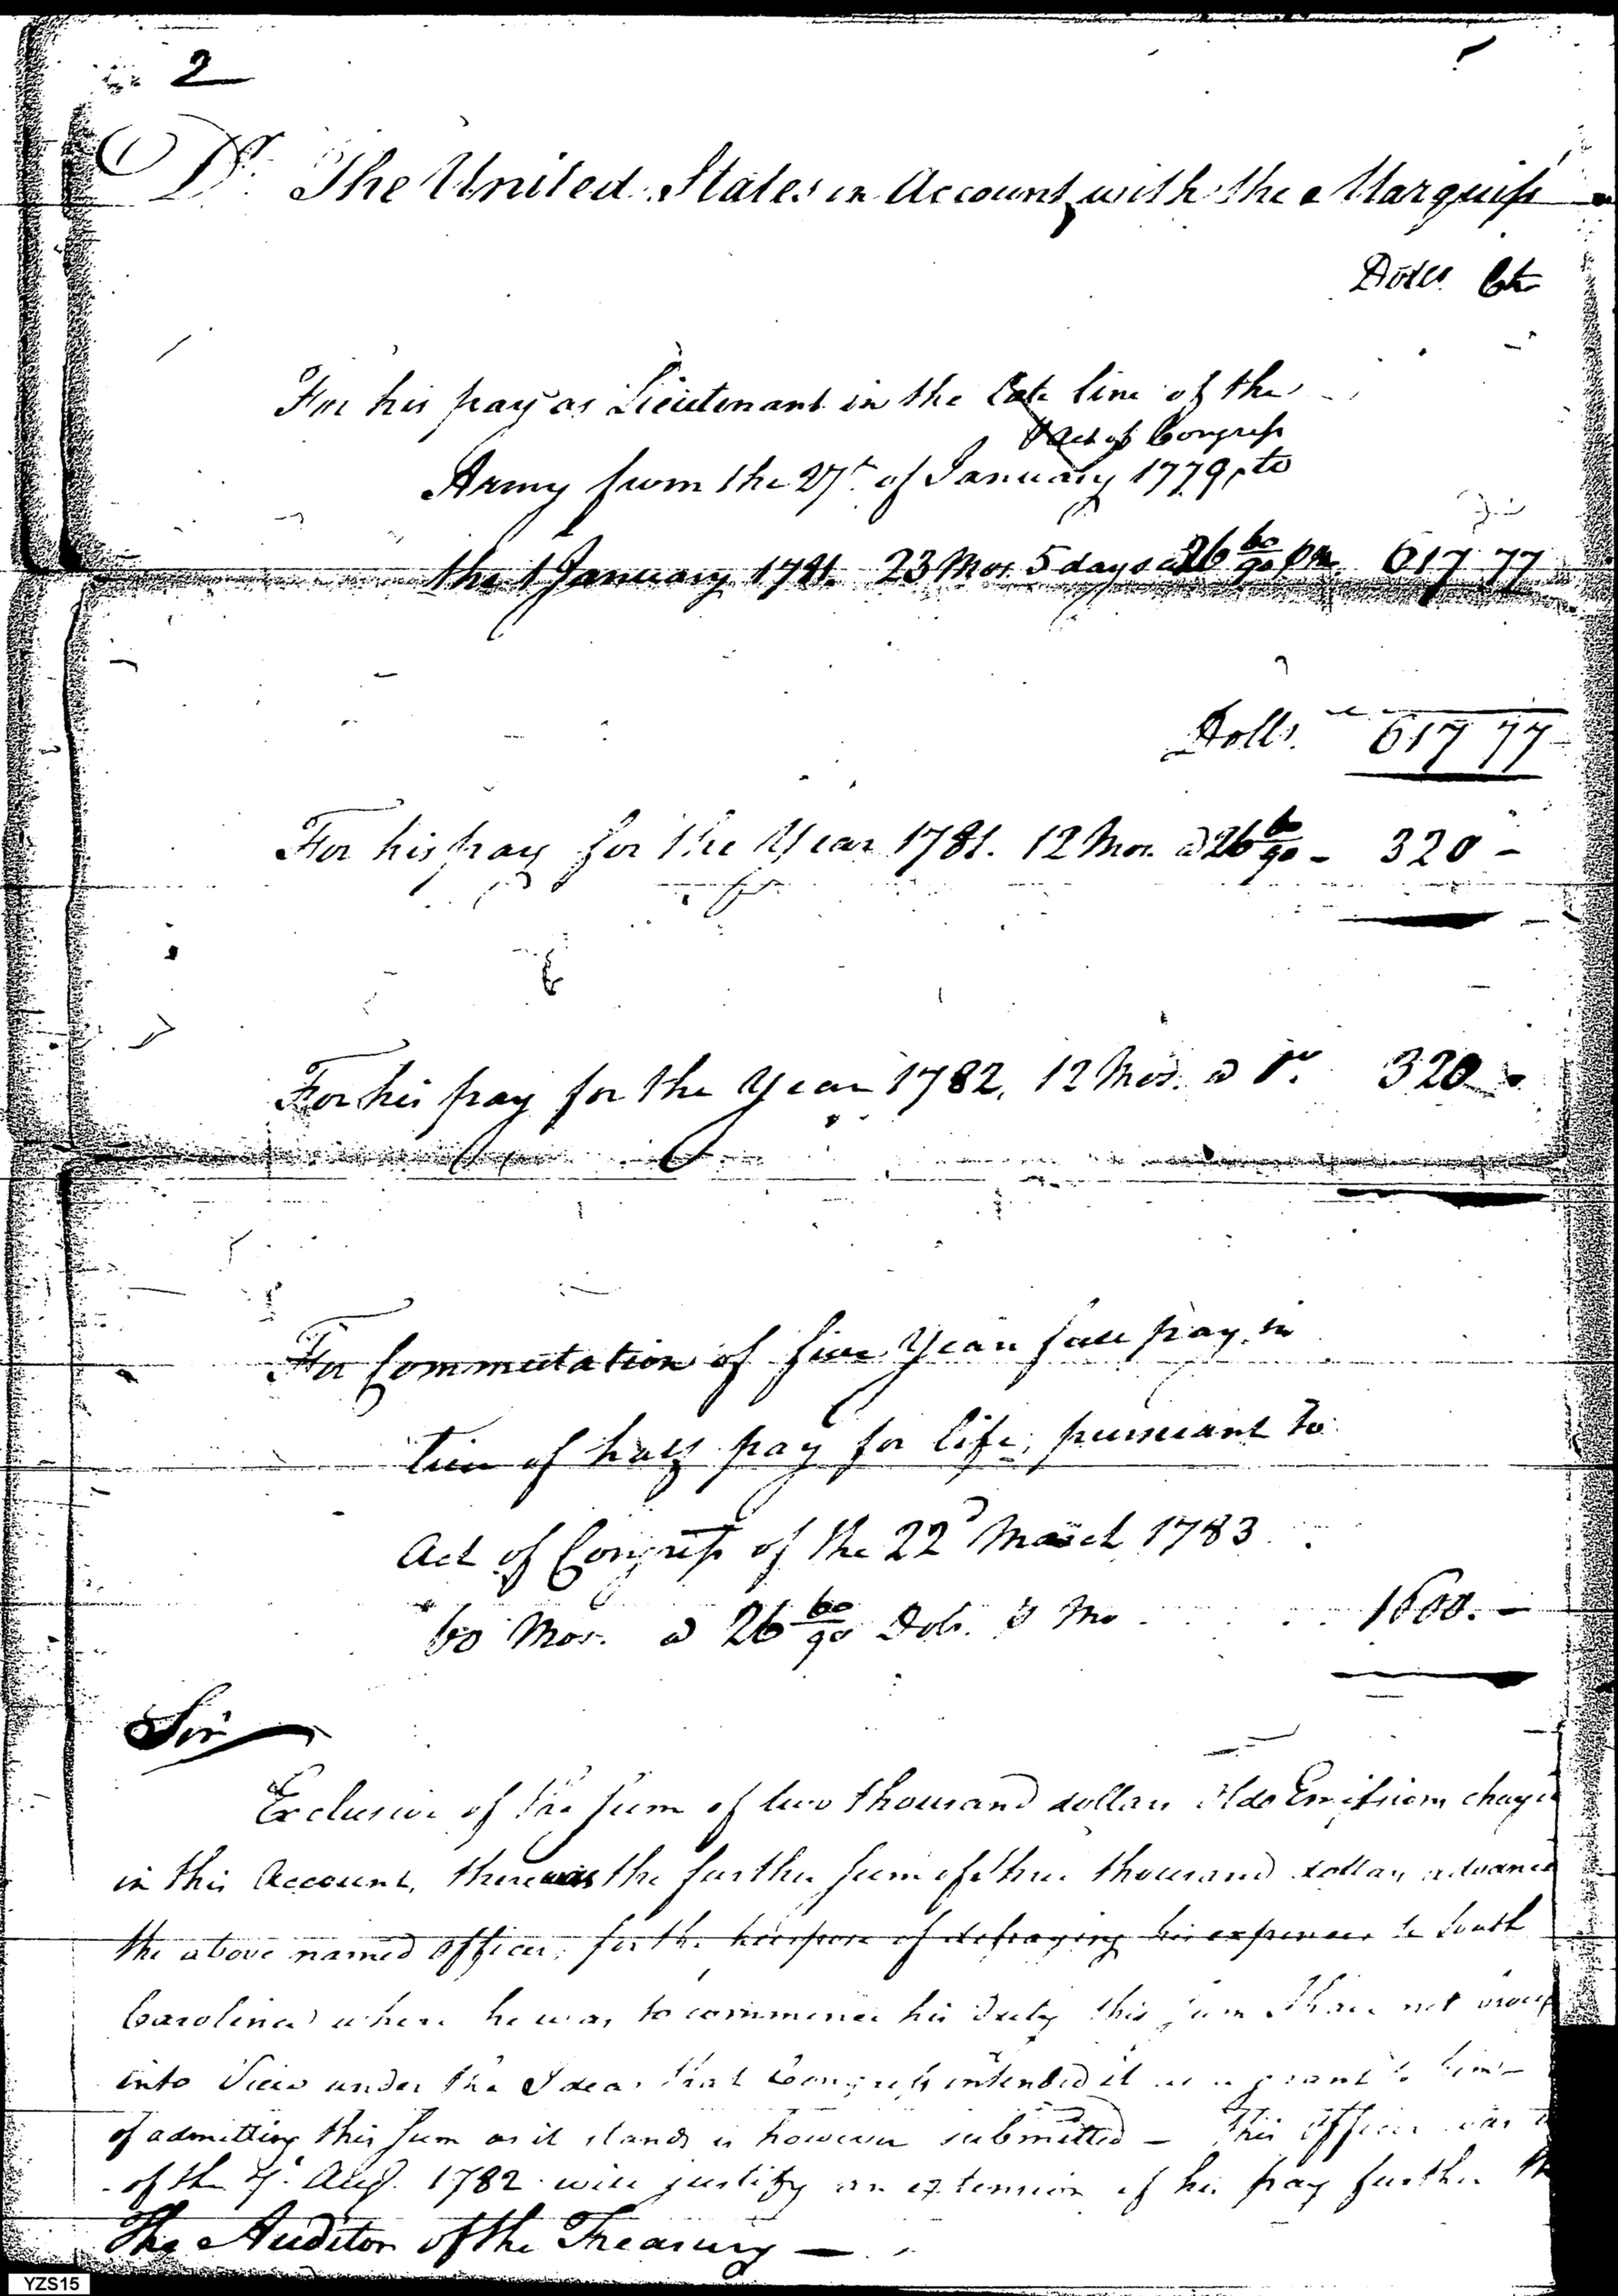 2
Dr. The United States in Account with the Marquiss
Dolls. Cts
For his pay as Lieutenant in the late line of the
Act of Congress
Army from the 27th of January 1779, to
the 1 January 1781. 23 Mos. 5 days a 26 60/90 pm 617 77
Dolls. 617 77
For his pay for the Year 1781. 12 Mos. a 26 60/90 - 320 -
For his pay for the Year 1782, 12 Mos. a Do. 320 -
For Commutation of five Years full pay, in
tion of half pay for life, pursuant to
Act of Congress of the 22d March 1783
60 Mos. a 26 60/90 Dols. Mo 1600. -
Sir
Exclusive of the sum of two thousand dollars Old Emissions charged
in this Account, there was the further sum of three thousand dollars advanced
the above named officer, for the purpose of defraying his expences to South
Carolina where he was to commence his duty this sum I have not
into View under the Idea that Congress intended it as a grant to him -
of admitting this sum as it stands is however submitted - This Officer was
of the 7. Augt. 1782 will justify an extension of his pay further
The Auditor of the Treasury -
YZS15